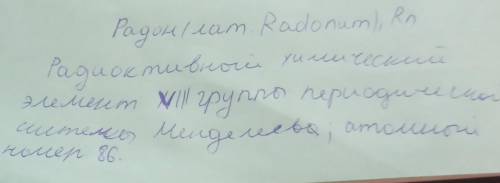 Радон (лат. Radonum), Rn
Радиоактивный химический
элемент VIII группы периодической
системы Менделеева; атомный
номер 86.